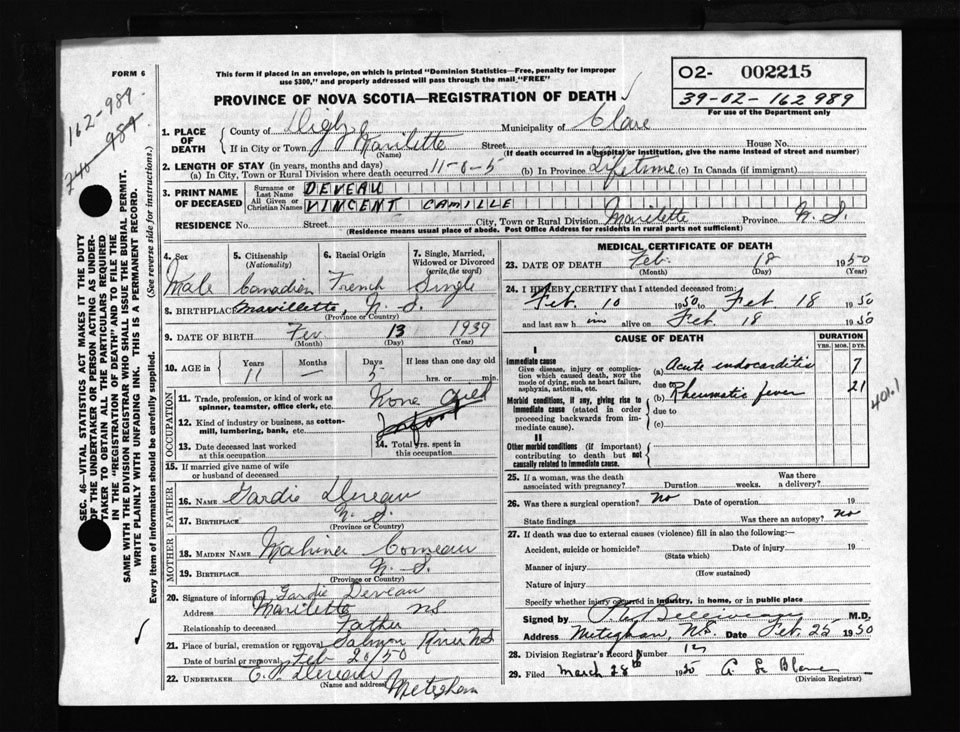 FORM 6
This form if placed in an envelope, on which is printed "Dominion Statistics—Free, penalty for improper
use $300," and properly addressed will pass through the mail "FREE"
PROVINCE OF NOVA SCOTIA—REGISTRATION OF DEATH
02- 002215
39-02-162989
For use of the Department only
162-989
1. PLACE OF DEATH
County of Digby Municipality of Clare
If in City or Town Mavilette Street House No.
(Name) (If death occurred in a hospital or institution, give the name instead of street and number)
2. LENGTH OF STAY (in years, months and days)
(a) In City, Town or Rural Division where death occurred 11-0-5 (b) In Province Lifetime (c) In Canada (if immigrant)
3. PRINT NAME OF DECEASED
Surname or Last Name DEVEAU
All Given or Christian Names VINCENT CAMILLE
RESIDENCE No. Street City, Town or Rural Division Mavilette Province N. S.
(Residence means usual place of abode. Post Office Address for residents in rural parts not sufficient)
4. Sex 5. Citizenship (Nationality) 6. Racial Origin 7. Single, Married, Widowed or Divorced (write the word)
Male Canadian French Single
8. BIRTHPLACE Mavillette, N. S.
(Province or Country)
9. DATE OF BIRTH Fev 13 1939
(Month) (Day) (Year)
10. AGE in Years Months Days If less than one day old
11 — 5 hrs. or min.
OCCUPATION
11. Trade, profession, or kind of work as spinner, teamster, office clerk, etc. None
12. Kind of industry or business, as cotton-mill, lumbering, bank, etc.
13. Date deceased last worked at this occupation
14. Total yrs. spent in this occupation
15. If married give name of wife or husband of deceased
FATHER
16. NAME Gardie Deveau
17. BIRTHPLACE N. S.
(Province or Country)
MOTHER
18. MAIDEN NAME Comeau
19. BIRTHPLACE N. S.
(Province or Country)
20. Signature of informant Gardie Deveau
Address Mavilette NS
Relationship to deceased Father
21. Place of burial, cremation or removal Salmon River NS
Date of burial or removal Feb 20/50
22. UNDERTAKER Deveau
(Name and address) Meteghan
MEDICAL CERTIFICATE OF DEATH
23. DATE OF DEATH Feb. 18 1950
(Month) (Day) (Year)
24. I HEREBY CERTIFY that I attended deceased from:
Feb. 10 1950 to Feb 18 1950
and last saw him alive on Feb. 18 1950
CAUSE OF DEATH DURATION
YRS. MOS. DYS.
I
Immediate cause
Give disease, injury or complication which caused death, NOR the mode of dying, such as heart failure, asphyxia, asthenia, etc.
(a) Acute endocarditis 7
due to
(b) Rheumatic fever 21
Morbid conditions, if any, giving rise to immediate cause (stated in order proceeding backwards from immediate cause).
due to
(c)
II
Other morbid conditions (if important) contributing to death but not causally related to immediate cause.
25. If a woman, was the death associated with pregnancy? Duration weeks. Was there a delivery?
26. Was there a surgical operation? No Date of operation 19
State findings Was there an autopsy? No
27. If death was due to external causes (violence) fill in also the following:—
Accident, suicide or homicide? Date of injury 19
(State which)
Manner of injury
(How sustained)
Nature of injury
Specify whether injury occurred in industry, in home, or in public place
Signed by M.D.
Address Meteghan, N.S. Date Feb 25 1950
28. Division Registrar's Record Number
29. Filed March 28th 1950
(Division Registrar)
SEC. 46—VITAL STATISTICS ACT MAKES IT THE DUTY
OF THE UNDERTAKER OR PERSON ACTING AS UNDER-
TAKER TO OBTAIN ALL THE PARTICULARS REQUIRED
IN THE "REGISTRATION OF DEATH" AND TO FILE THE
SAME WITH THE DIVISION REGISTRAR WHO SHALL ISSUE THE BURIAL PERMIT.
WRITE PLAINLY WITH UNFADING INK. THIS IS A PERMANENT RECORD.
Every item of information should be carefully supplied. (See reverse side for instructions.)